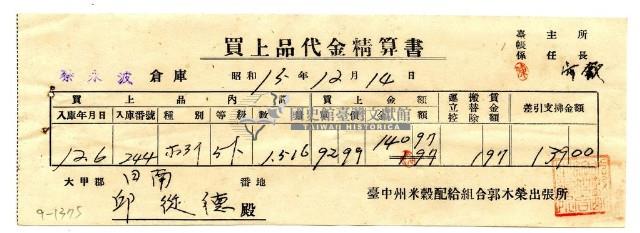 買上品代金精算書
臺帳係 主任 所長
蔡永波 倉庫 昭和15年12月14日
買上品內 金額 運搬賃立替金控除額 差引支拂金額
入庫年月日 入庫番號 種別 等級 數量 單價 金額
國史館臺灣文獻館
TAIWAN HISTORICA
12.6 244 5 1,516 92 99 140 97 1 97 139 00
大甲郡 日南 番地
邱從德殿
臺中州米穀配給組合郭木榮出張所
9-1375